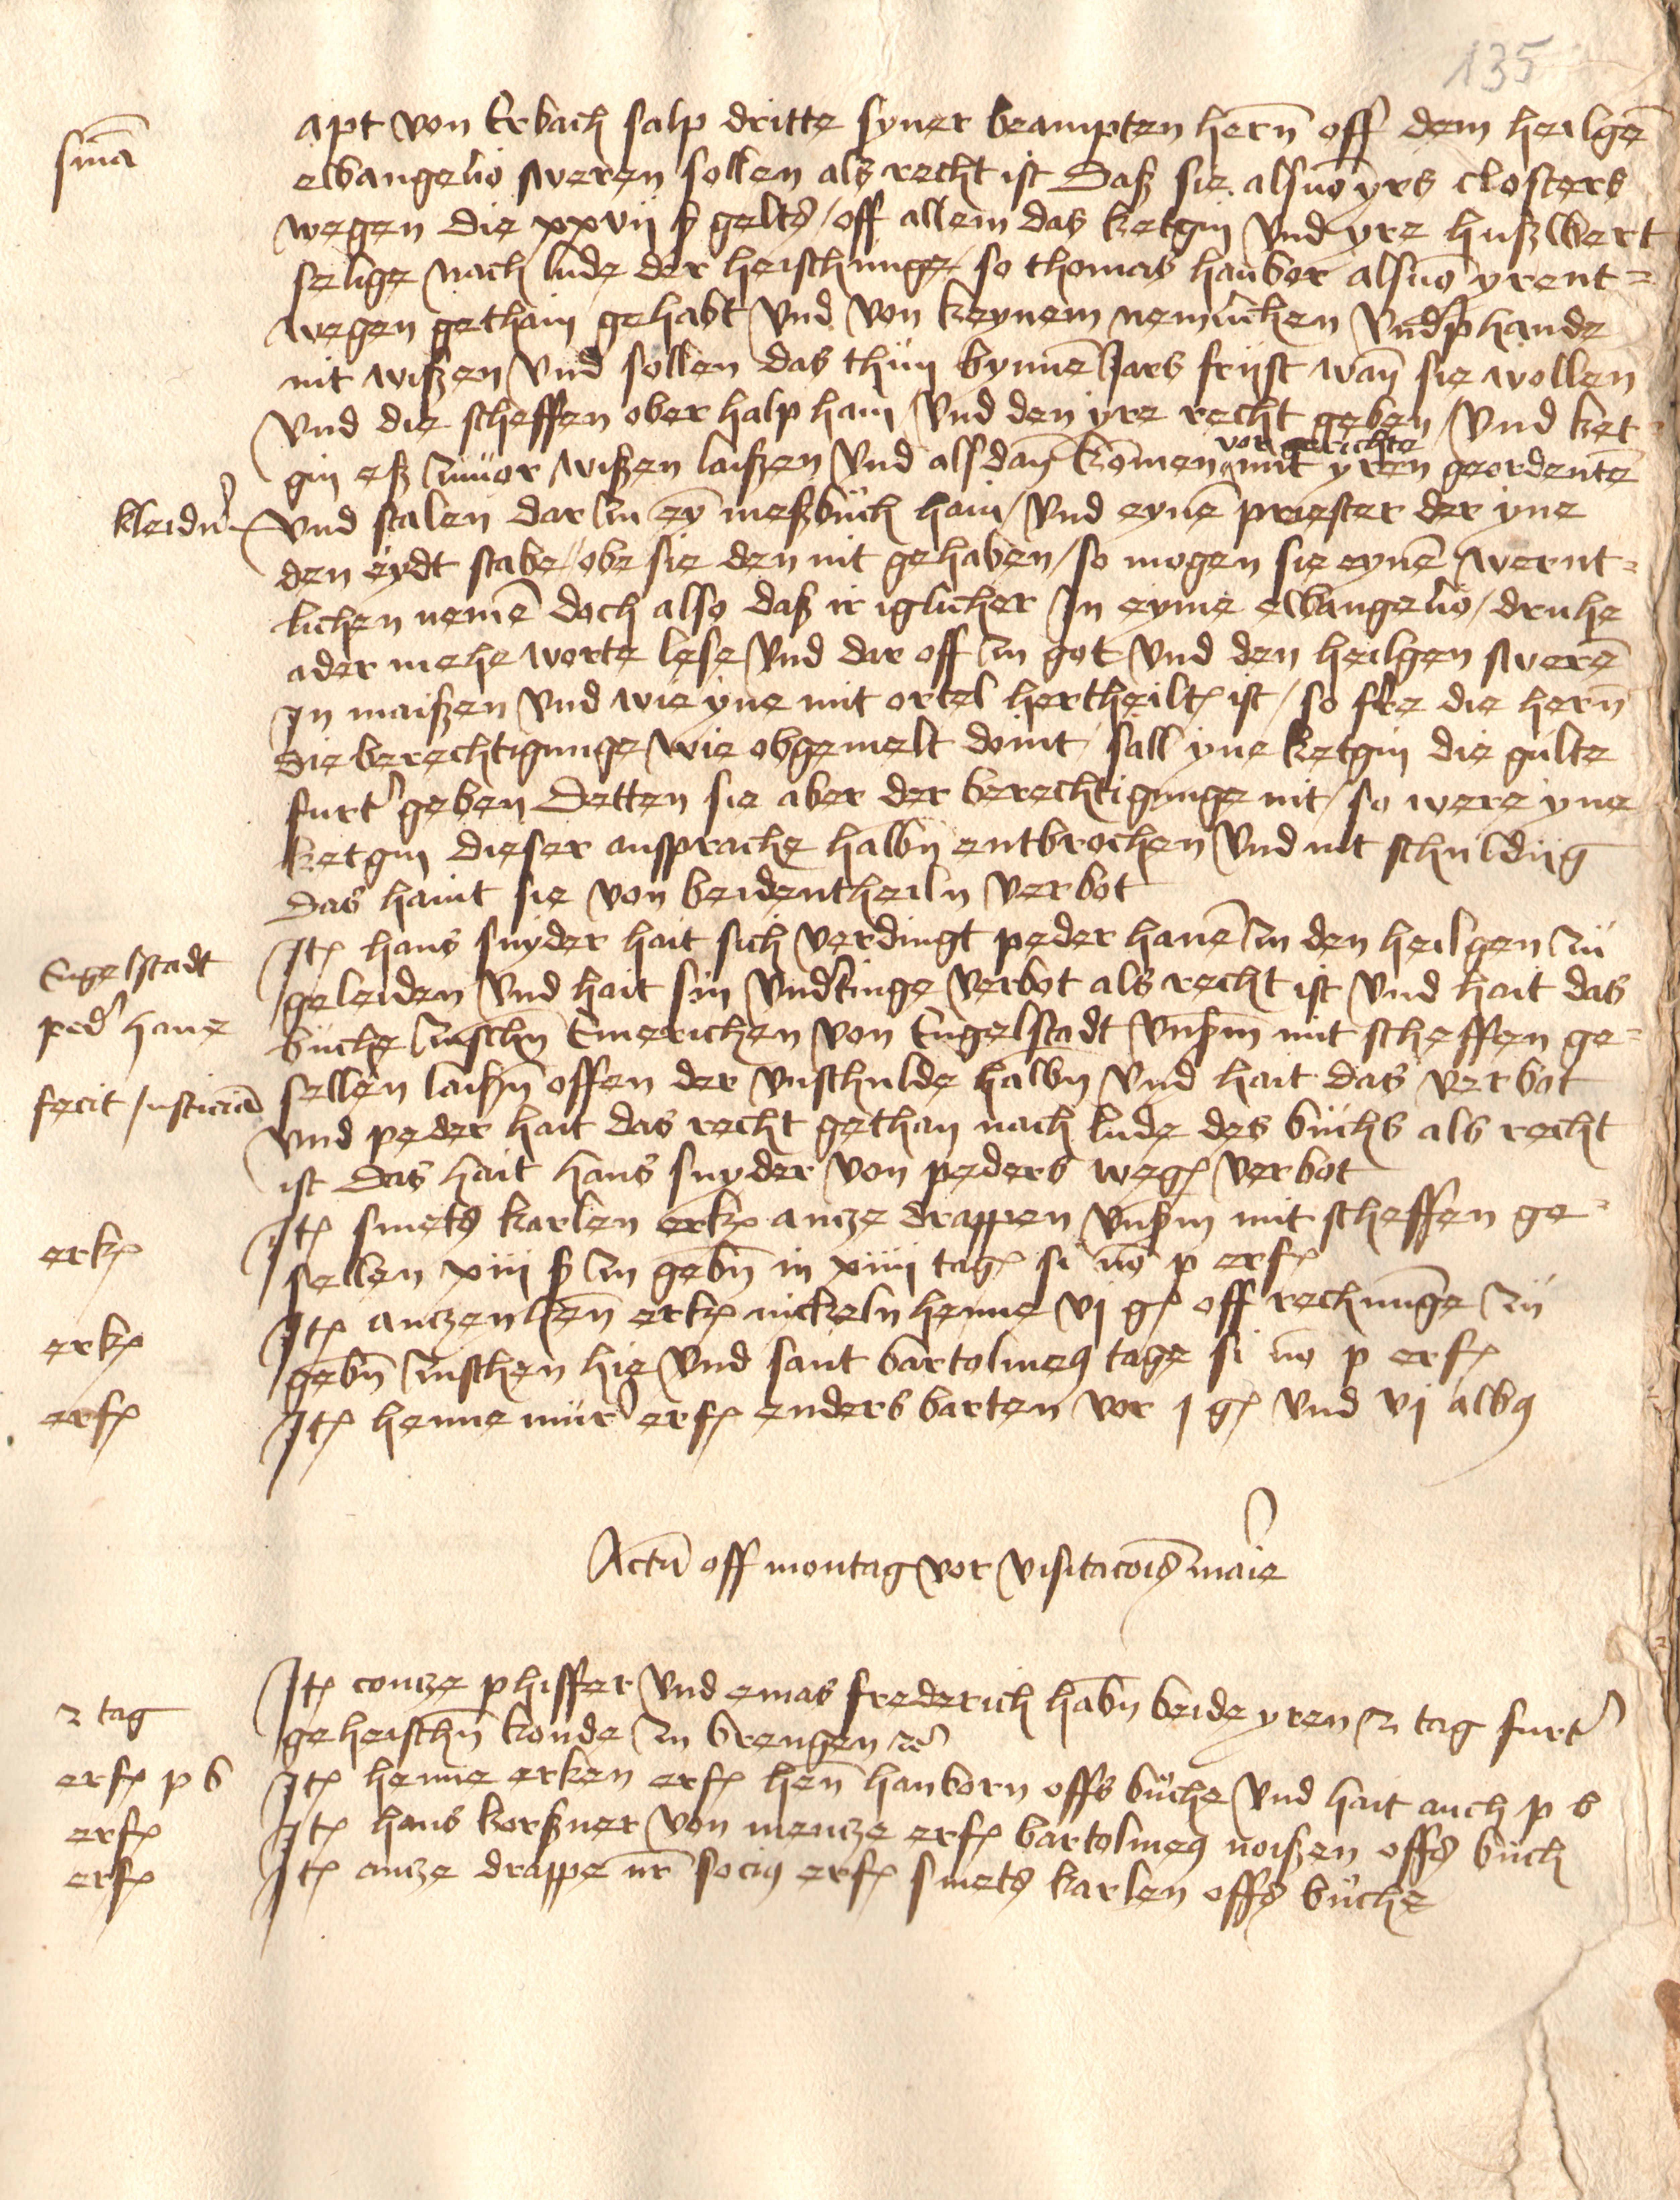 135
sm̄a
apt von Erbach salp dritte syner beampten hern̄ off dem heilgē
ewangelio sweren sollen als recht ist Daß sie als uō yrs closters
wegen die xxvij ß gelts / off allem das ketgin vnd yre hußwert
selige nach lude der heischunge / so thomas haubor als uō yrent=
wegen gethain gehabt vnd von keynem nemlichen vndphande
nit wißen vnd sollen das thun bynnē Jars frijst wan̄ sie wollen
vnd die scheffen ober halp hain vnd den yre recht geben / vnd ket=
vor gerichte
gin eß zuuor wißen laißen vnd als dan̄ komen mit yren geordentē
kleidū
vnd stalen dar zu ey̅ meßbuch hain / vnd eynē priester der yne
den eydt stabe / obe sie den nit gehaben / so mogen sie eynē wernt=
lichen nemē doch also daß ir iglicher In eyme ewangelio / druhe
ader mehe worte lese vnd dar off zu got vnd den heilgen swerē
In maißen vnd wie yne mit ortel hertheilt ist / so ſie die hern̄
die berechtigunge wie obgemelt doint / sall yne ketgin die gulte
furt' geben Detten sie aber der berechtigunge nit / so were yne
ketgin dieser ansprache halbn̄ entbrochen vnd nit schuldig
das haint sie von beidentheiln verbot
Engelstadt
ped' hane
fecit Justiciā
Itʒ hans snyder hait sich verdingt peder hanē zu den heilgen zu
geleiden vnd hait sin vnd'tinge verbot als recht ist vnd hait das
buche zusch̄n Emerichen von Engelstadt vnßm mit scheffen ge=
sellen laiß̄n offen der vnschulde halbn̄ vnd hait das verbot
vnd peder hait das recht gethan nach lude des buchs als recht
ist das hait hans snyder von peders wegʒ verbot
erkʒ
Itʒ smets karlen erkʒ ancze drappen vnßm mit scheffen ge=
sellen xiij ß zu gebn̄ in xiiij tagʒ si nō p erfʒ
erkʒ
Itʒ anczen hen̄ erkʒ nickeln henne vj gʒ off rechnūge zu
gebn̄ zuschen hie vnd sant bartolmeꝯ tage si nō p erfʒ
erfʒ
Itʒ henne mur' erfʒ enders barten vor j gʒ vnd vj albꝯ
Actū off montag vor visitacōis marie
2 tag
Itʒ concze phiffer vnd emas frederich habn̄ beide yren 2 tag furt'
geheisch̄n konde zu brengen ꝛc
erfʒ p b
Itʒ henne erken erfʒ hen̄ hanborn offs buche vnd hait auch p b
erfʒ
Itʒ hans korßner von mencze erfʒ bartolmeꝯ noißen offs buch
erfʒ
Itʒ ancze drappe nr̄ sociꝯ erfʒ smets karlen offs buche